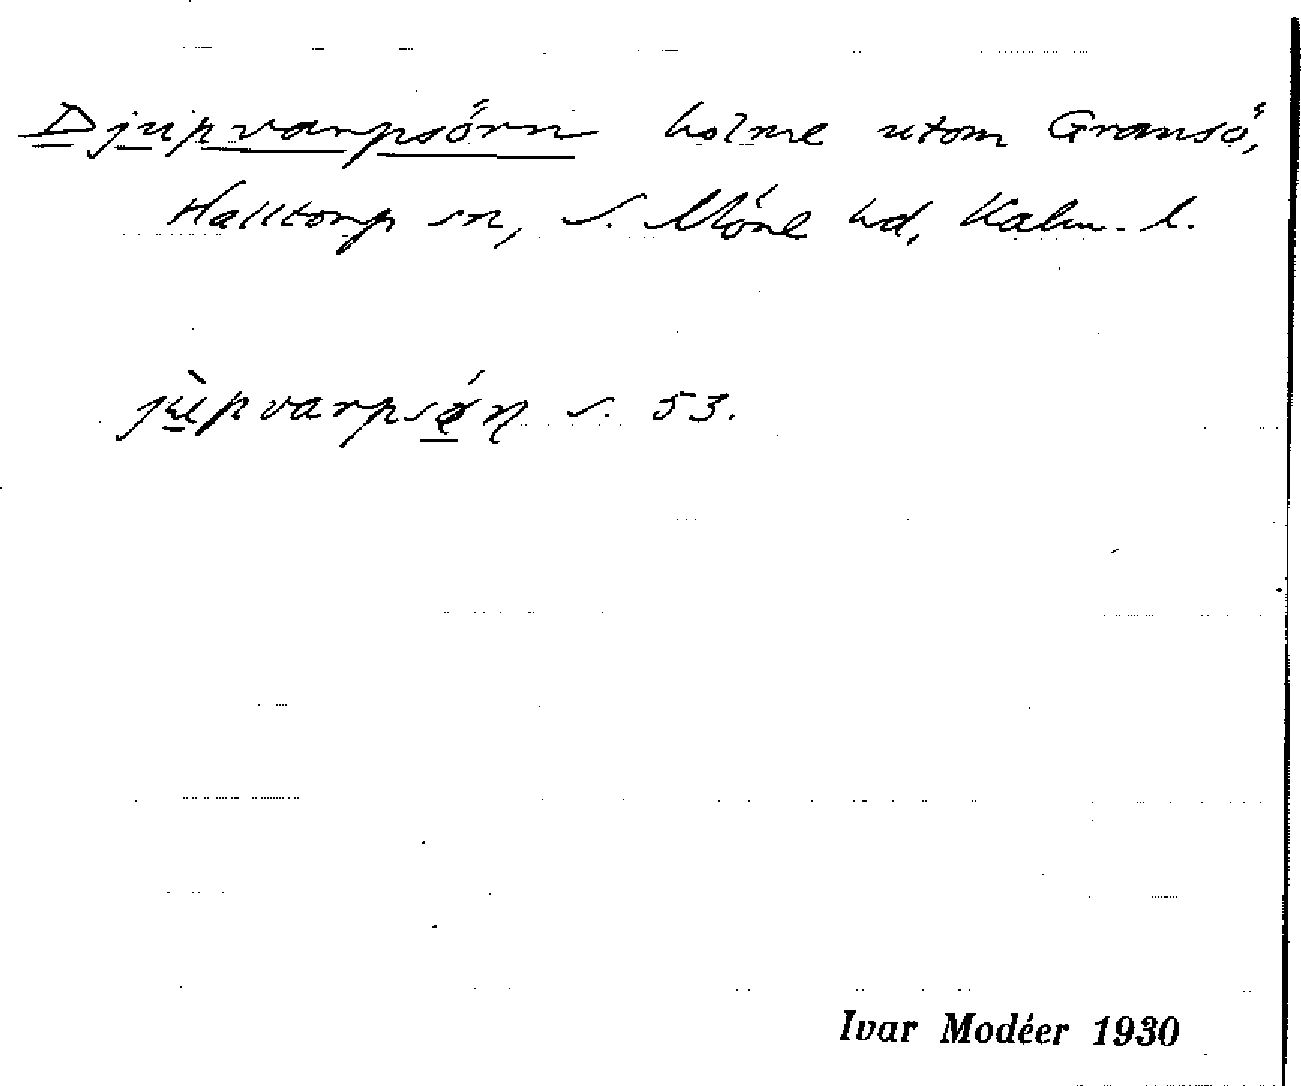 Djupvarpsörn holme utom Gransö,
Halltorp sn, S. Möre hd, Kalm. l.
jùpvarpsǿn s. 53.
Ivar Modéer 1930